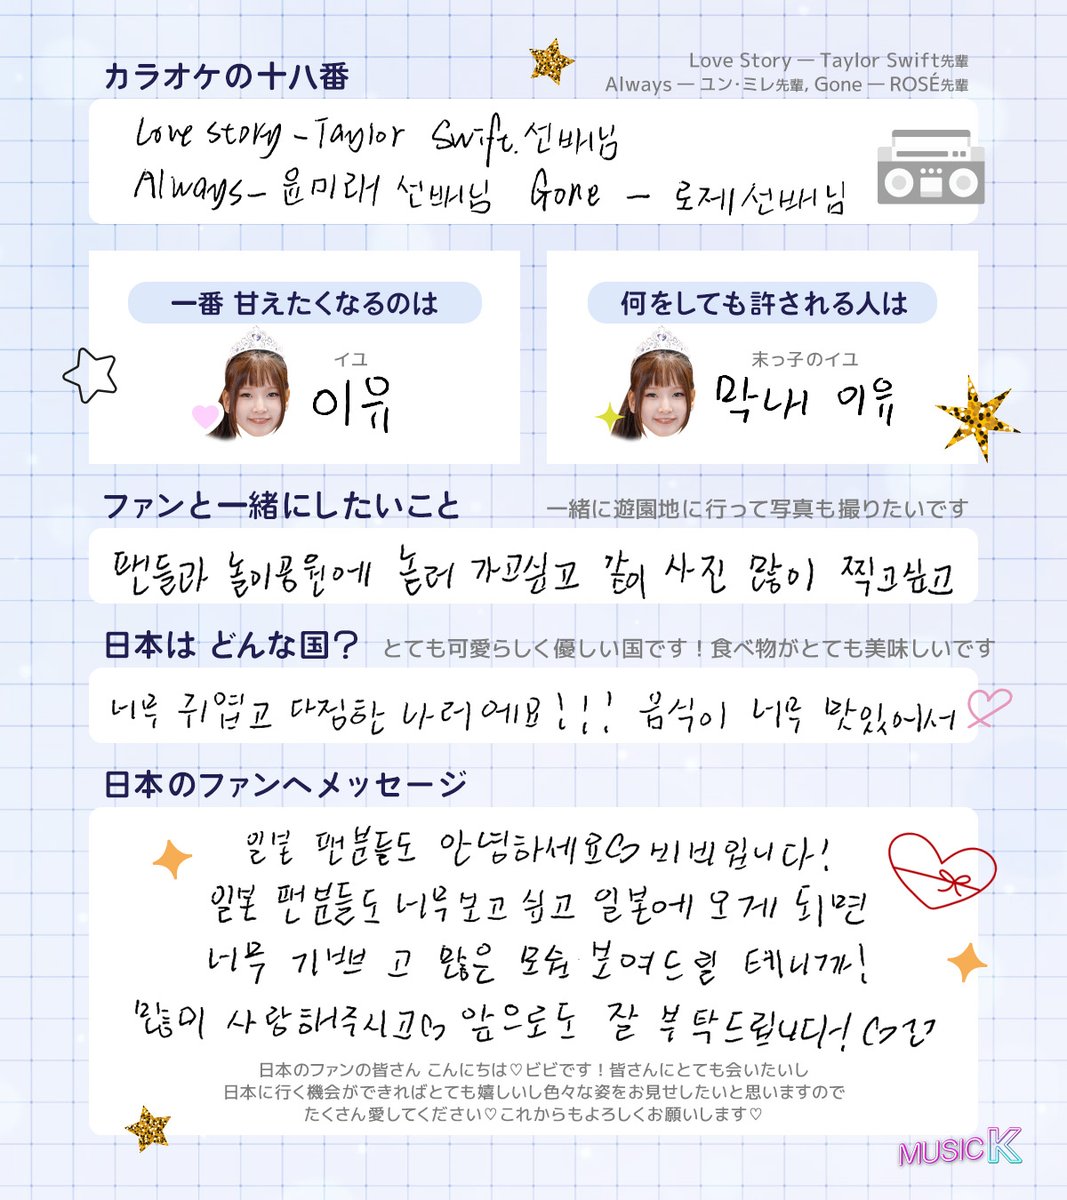 カラオケの十八番
Love Story ― Taylor Swift先輩
Always ― ユン・ミレ先輩, Gone ― ROSÉ先輩
Love story - Taylor Swift. 선배님
Always - 윤미래 선배님 Gone - 로제선배님
一番 甘えたくなるのは
イユ
이유
何をしても許される人は
末っ子のイユ
막내 이유
ファンと一緒にしたいこと
一緒に遊園地に行って写真も撮りたいです
팬들과 놀이공원에 놀러 가고싶고 같이 사진 많이 찍고싶고
日本は どんな国？
とても可愛らしく優しい国です！食べ物がとても美味しいです
너무 귀엽고 다정한 나라에요!!! 음식이 너무 맛있어서
日本のファンへメッセージ
일본 팬분들도 안녕하세요♡ 비비입니다!
일본 팬분들도 너무보고 싶고 일본에 오게 되면
너무 기쁘 고 많은 모습 보여드릴 테니까!
많이 사랑해주시고♡ 앞으로도 잘 부탁드립니다! ♡♡
日本のファンの皆さん こんにちは♡ビビです！皆さんにとても会いたいし
日本に行く機会ができればとても嬉しいし色々な姿をお見せしたいと思いますので
たくさん愛してください♡これからもよろしくお願いします♡
MUSIC K